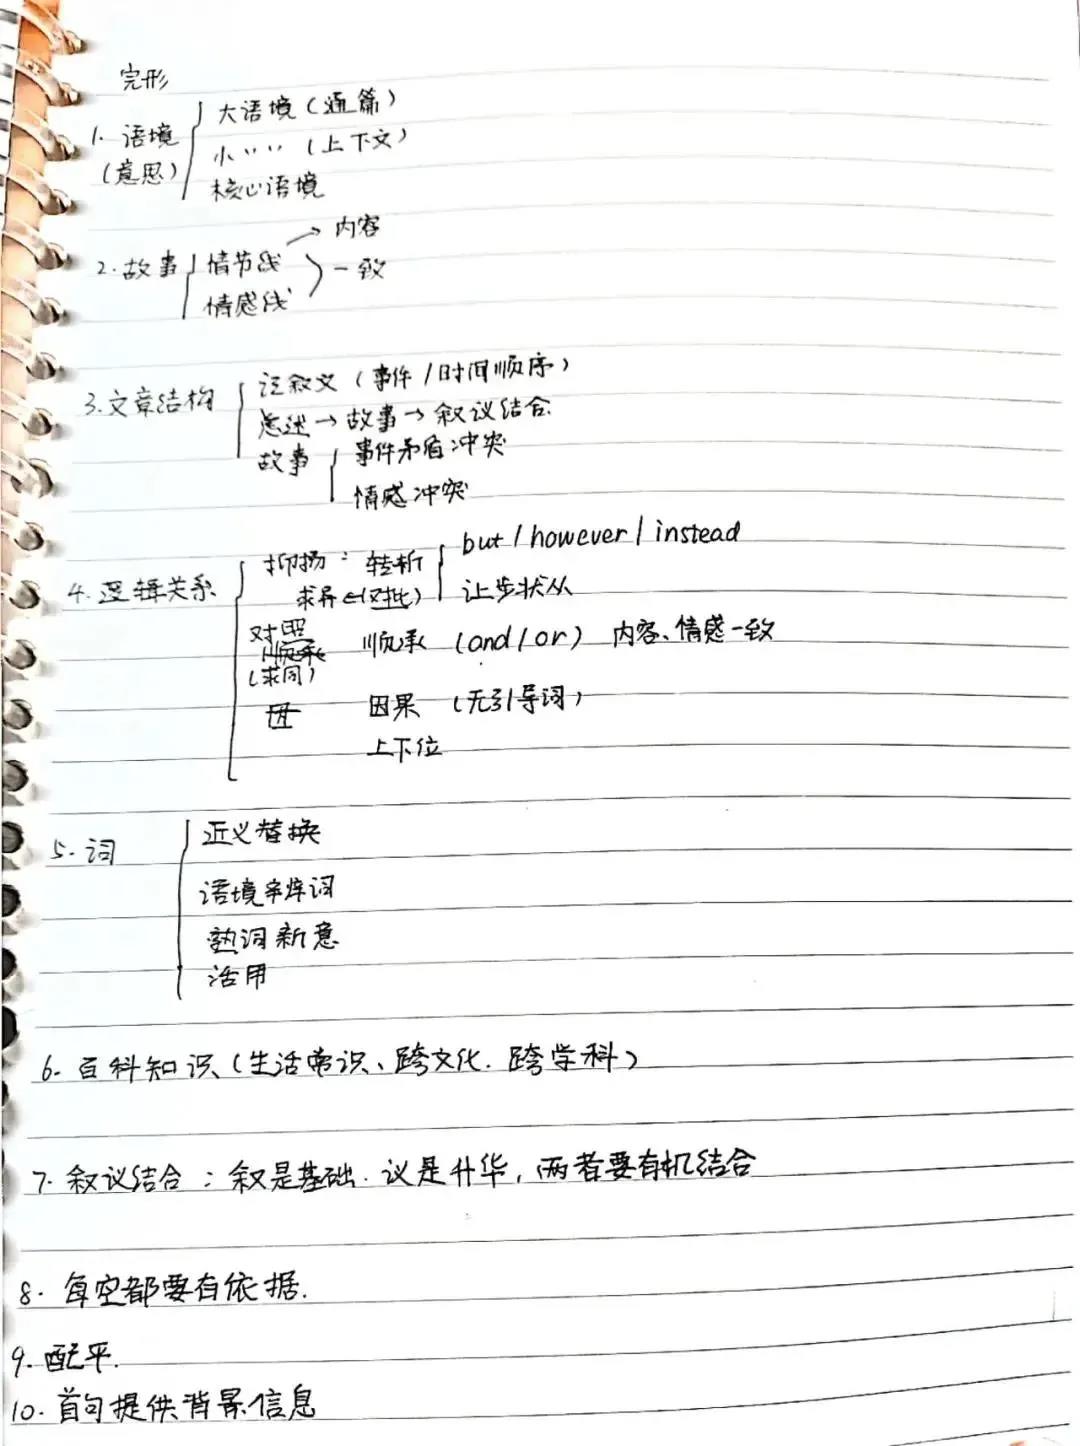 完形
1. 语境 { 大语境（通篇）
(意思) 小〃〃（上下文）
核心语境
→ 内容
2. 故事 { 情节线 } 一致
情感线
3. 文章结构 { 记叙文（事件/时间顺序）
总述→故事→叙议结合
故事 { 事件矛盾冲突
情感冲突
4. 逻辑关系 { 抑扬： 转折 { but / however / instead
求异←(对比) 让步状从
对照 顺承 (and/or) 内容、情感一致
顺承
(求同)
因果 （无引导词）
上下位
5. 词 { 近义替换
语境辛烊词
熟词新意
活用
6. 百科知识（生活常识、跨文化. 跨学科）
7. 叙议结合：叙是基础. 议是升华, 两者要有机结合
8. 每空都要有依据.
9. 配平.
10. 首句提供背景信息